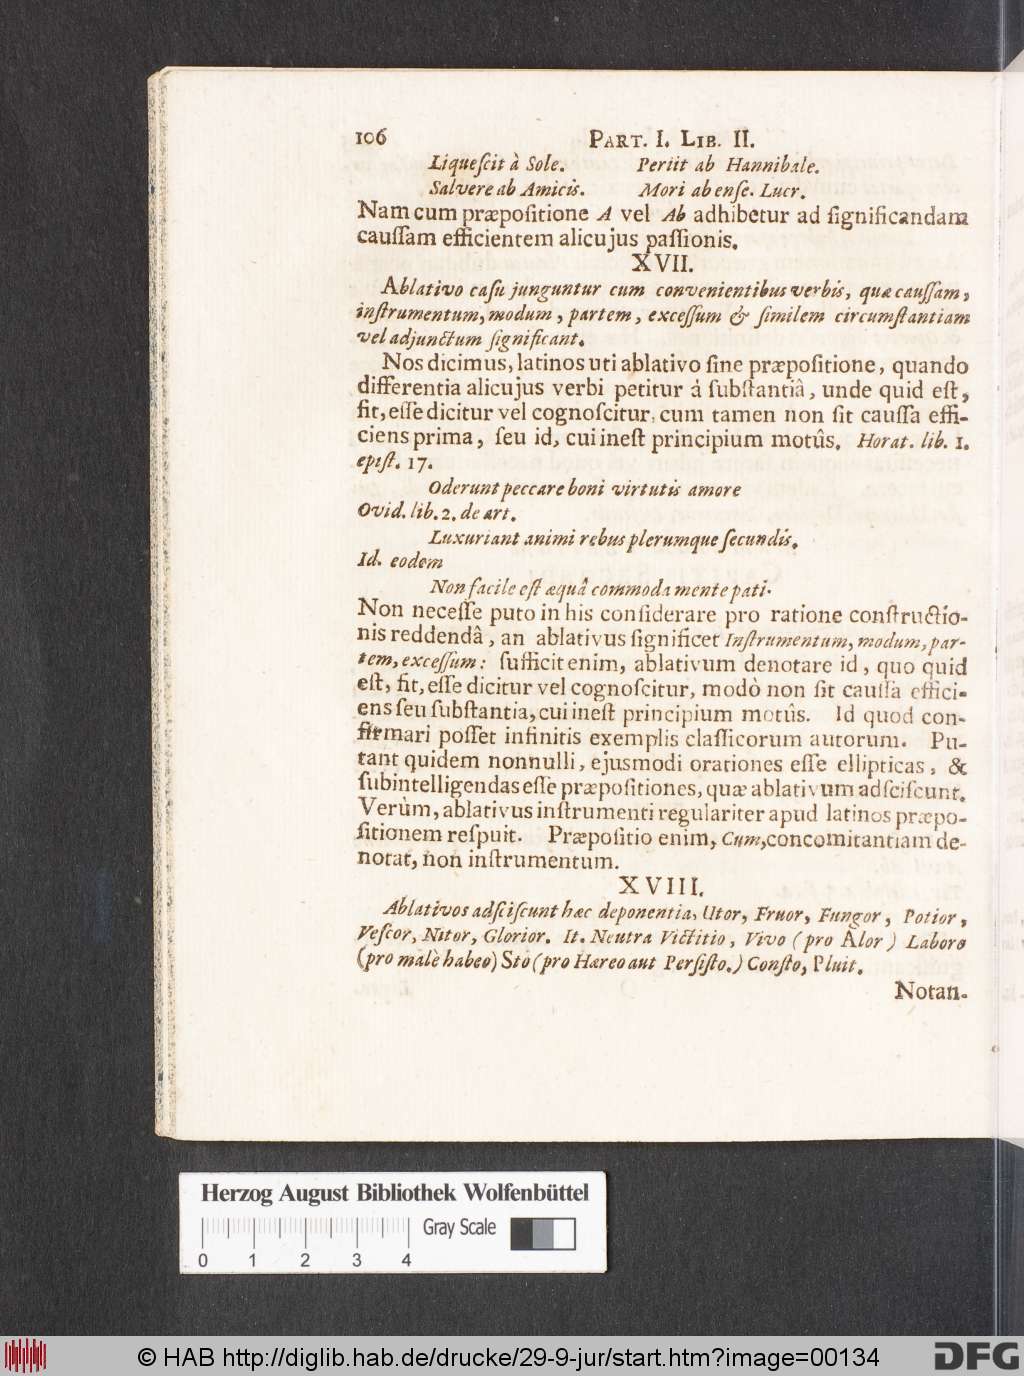 106 PART. I. LIB. II.
Liqueſcit à Sole. Periit ab Hannibale.
Salvere ab Amicis. Mori ab enſe. Lucr.
Nam cum præpoſitione A vel Ab adhibetur ad ſignificandam
cauſſam efficientem alicujus paſſionis.
XVII.
Ablativo caſu junguntur cum convenientibus verbis, quæ cauſſam,
inſtrumentum, modum, partem, exceſſum & ſimilem circumſtantiam
vel adjunctum ſignificant.
Nos dicimus, latinos uti ablativo ſine præpoſitione, quando
differentia alicujus verbi petitur á ſubſtantiâ, unde quid eſt,
fit, eſſe dicitur vel cognoſcitur, cum tamen non ſit cauſſa effi-
ciens prima, ſeu id, cui ineſt principium motûs. Horat. lib. 1.
epiſt. 17.
Oderunt peccare boni virtutis amore
Ovid. lib. 2. de art.
Luxuriant animi rebus plerumque ſecundis.
Id. eodem
Non facile eſt æquâ commoda mente pati.
Non neceſſe puto in his conſiderare pro ratione conſtructio-
nis reddendâ, an ablativus ſignificet Inſtrumentum, modum, par-
tem, exceſſum: ſufficit enim, ablativum denotare id, quo quid
eſt, fit, eſſe dicitur vel cognoſcitur, modò non ſit cauſſa effici-
ens ſeu ſubſtantia, cui ineſt principium motûs. Id quod con-
firmari poſſet infinitis exemplis claſſicorum autorum. Pu-
tant quidem nonnulli, ejusmodi orationes eſſe ellipticas, &
ſubintelligendas eſſe præpoſitiones, quæ ablativum adſciſcunt.
Verùm, ablativus inſtrumenti regulariter apud latinos præpo-
ſitionem reſpuit. Præpoſitio enim, Cum, concomitantiam de-
notat, non inſtrumentum.
XVIII.
Ablativos adſciſcunt hæc deponentia, Utor, Fruor, Fungor, Potior,
Veſcor, Nitor, Glorior. It. Neutra Victitio, Vivo (pro Alor) Laboro
(pro malè habeo) Sto (pro Hæreo aut Perſiſto.) Conſto, Pluit.
Notan-
Herzog August Bibliothek Wolfenbüttel
Gray Scale
0 1 2 3 4
© HAB http://diglib.hab.de/drucke/29-9-jur/start.htm?image=00134
DFG